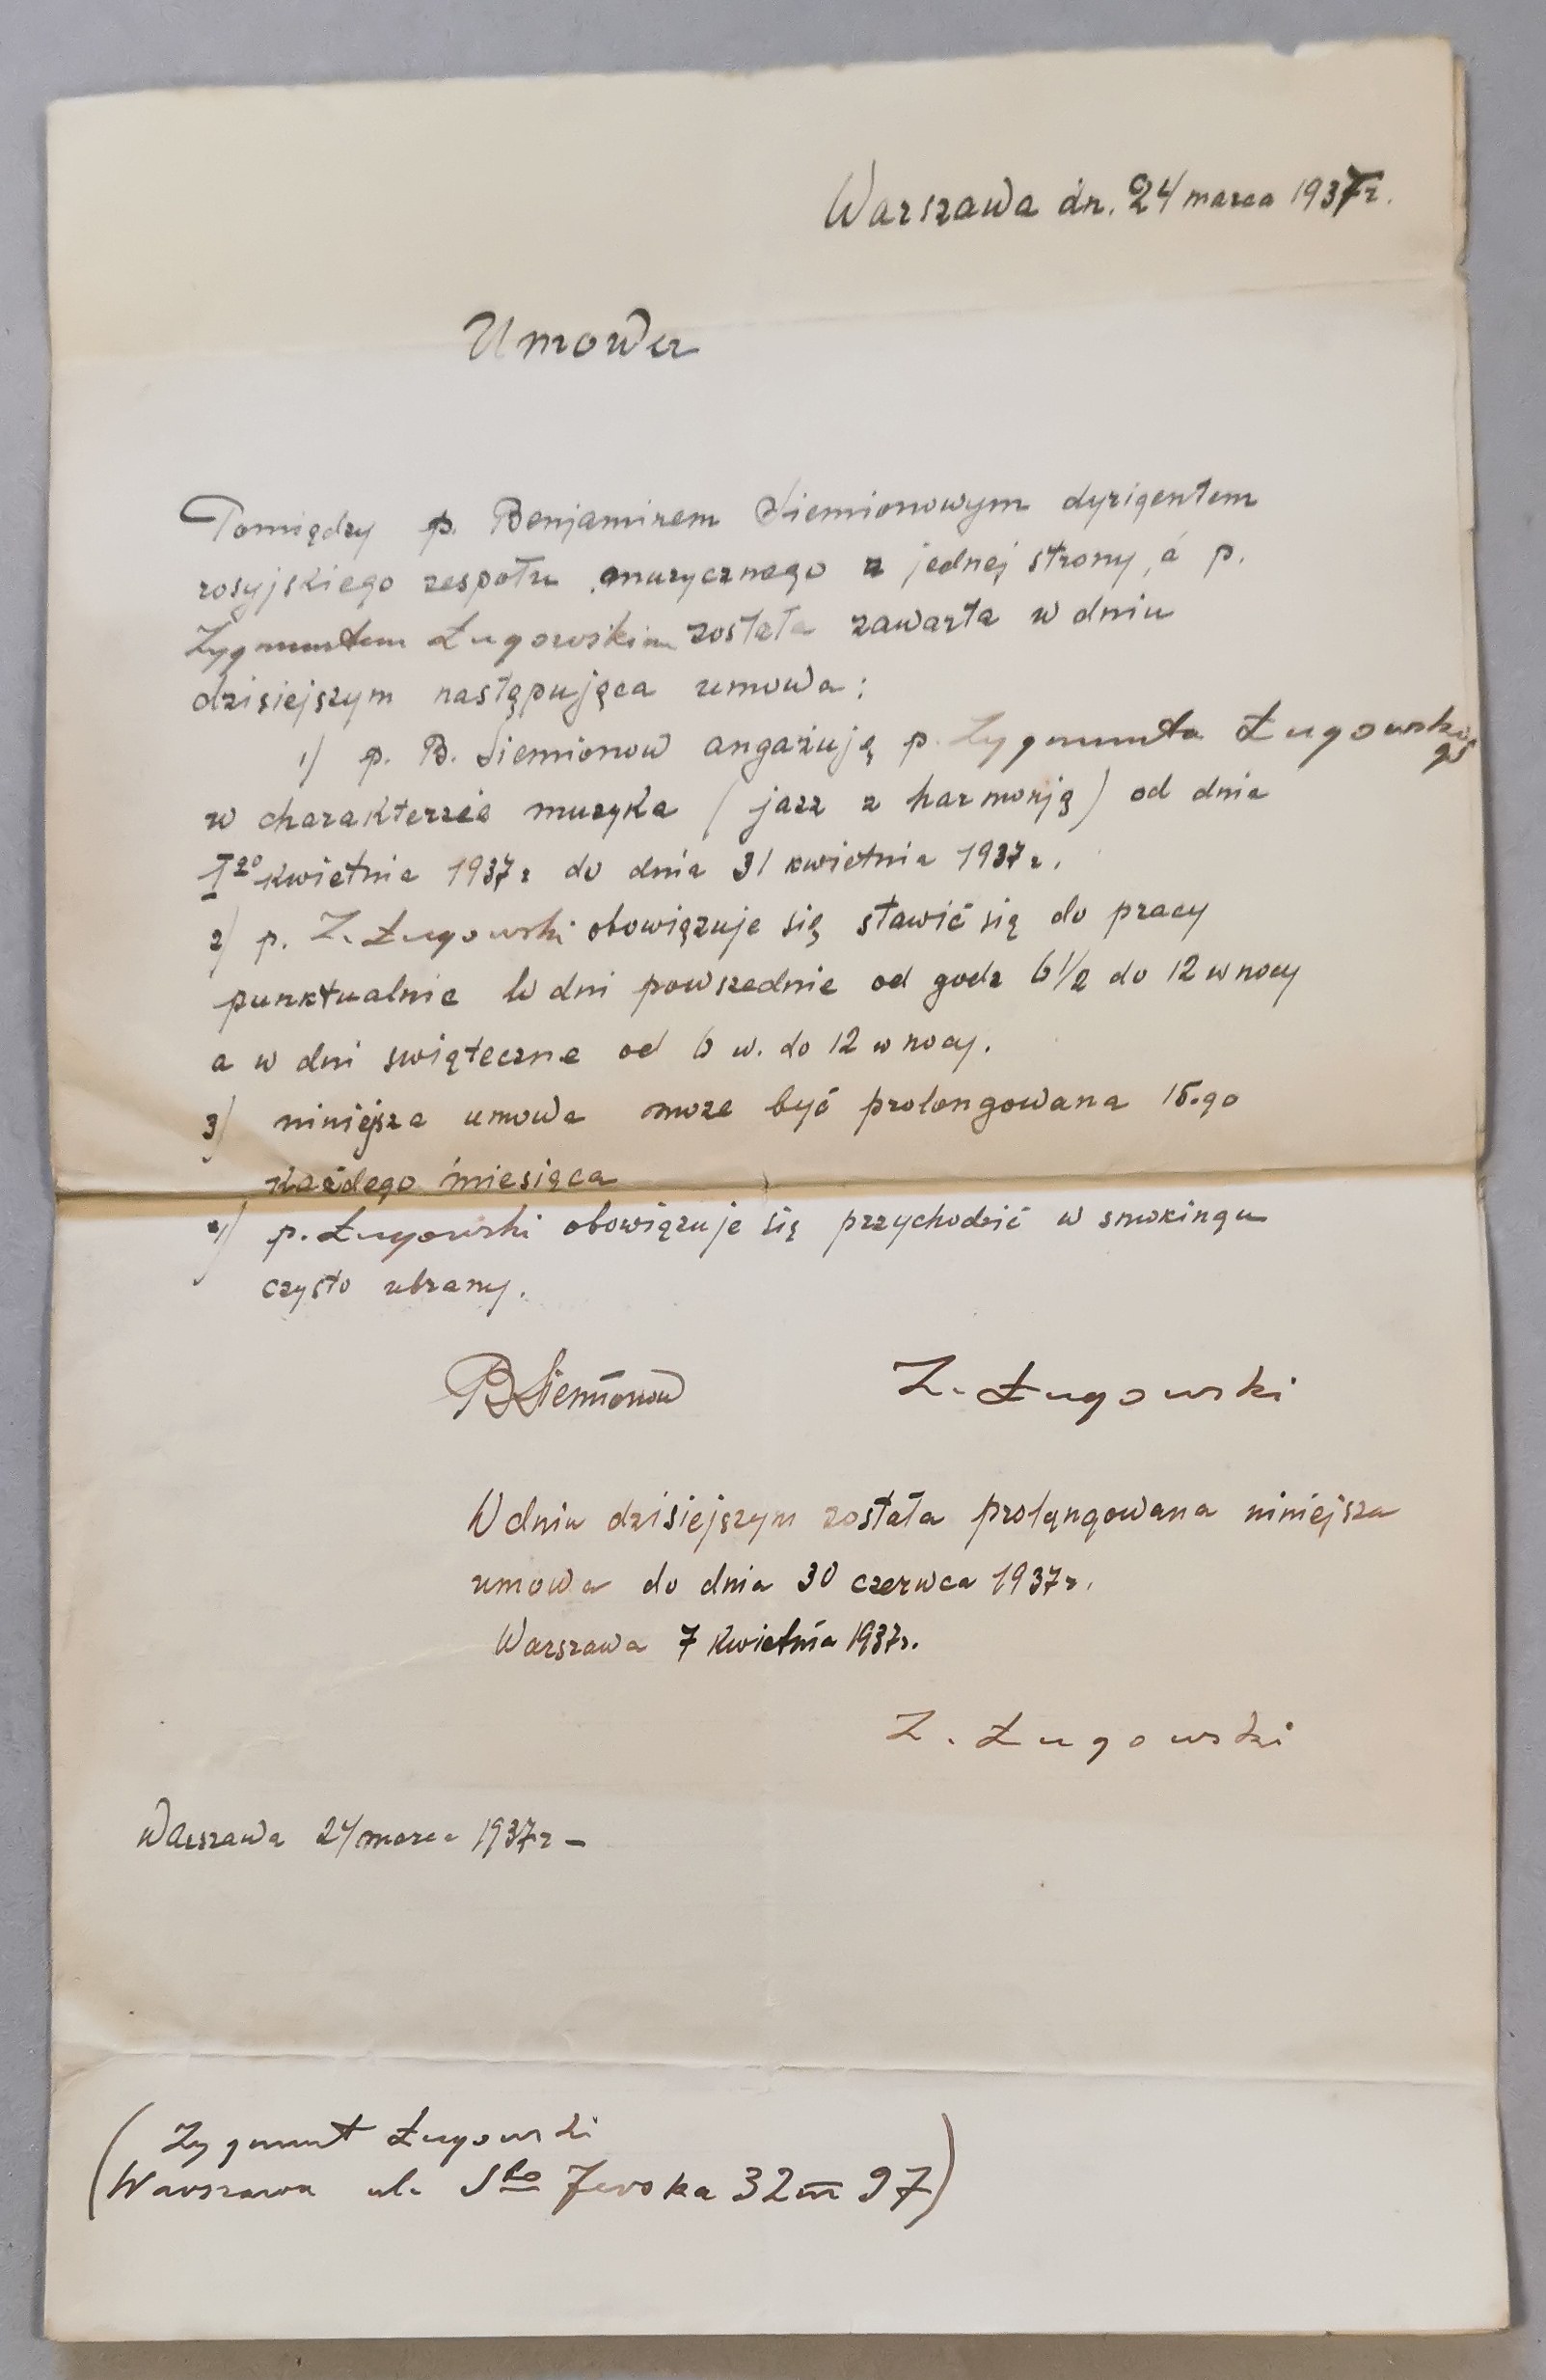 Warszawa dn. 24 marca 1937 r.
Umowa
Pomiędzy p. Benjaminem Siemionowym dyrigentem
rosyjskiego zespołu muzycznego z jednej strony, a p.
Zygmuntem Ługowskim została zawarta w dniu
dzisiejszym następująca umowa:
1) p. B. Siemionow angażuję p. Zygmunta Ługowskiego
w charakterze muzyka (jazz z harmonją) od dnia
I go kwietnia 1937 r do dnia 31 kwietnia 1937 r.
2) p. Z. Ługowski obowiązuje się stawić się do pracy
punktualnie w dni powszednie od godz 6 1/2 do 12 w nocy
a w dni swiąteczne od 6 w. do 12 w nocy.
3) niniejsza umowa może być prolongowana 15.go
każdego miesiąca
4) p. Ługowski obowiązuje się przychodzić w smokingu
czysto ubrany.
B Siemionow Z. Ługowski
W dniu dzisiejszym została prolongowana niniejsza
umowa do dnia 30 czerwca 1937 r.
Warszawa 7 kwietnia 1937 r.
Z. Ługowski
Warszawa 24 marca 1937 r –
(Zygmunt Ługowski
Warszawa ul. Sto Jerska 32 m 97)